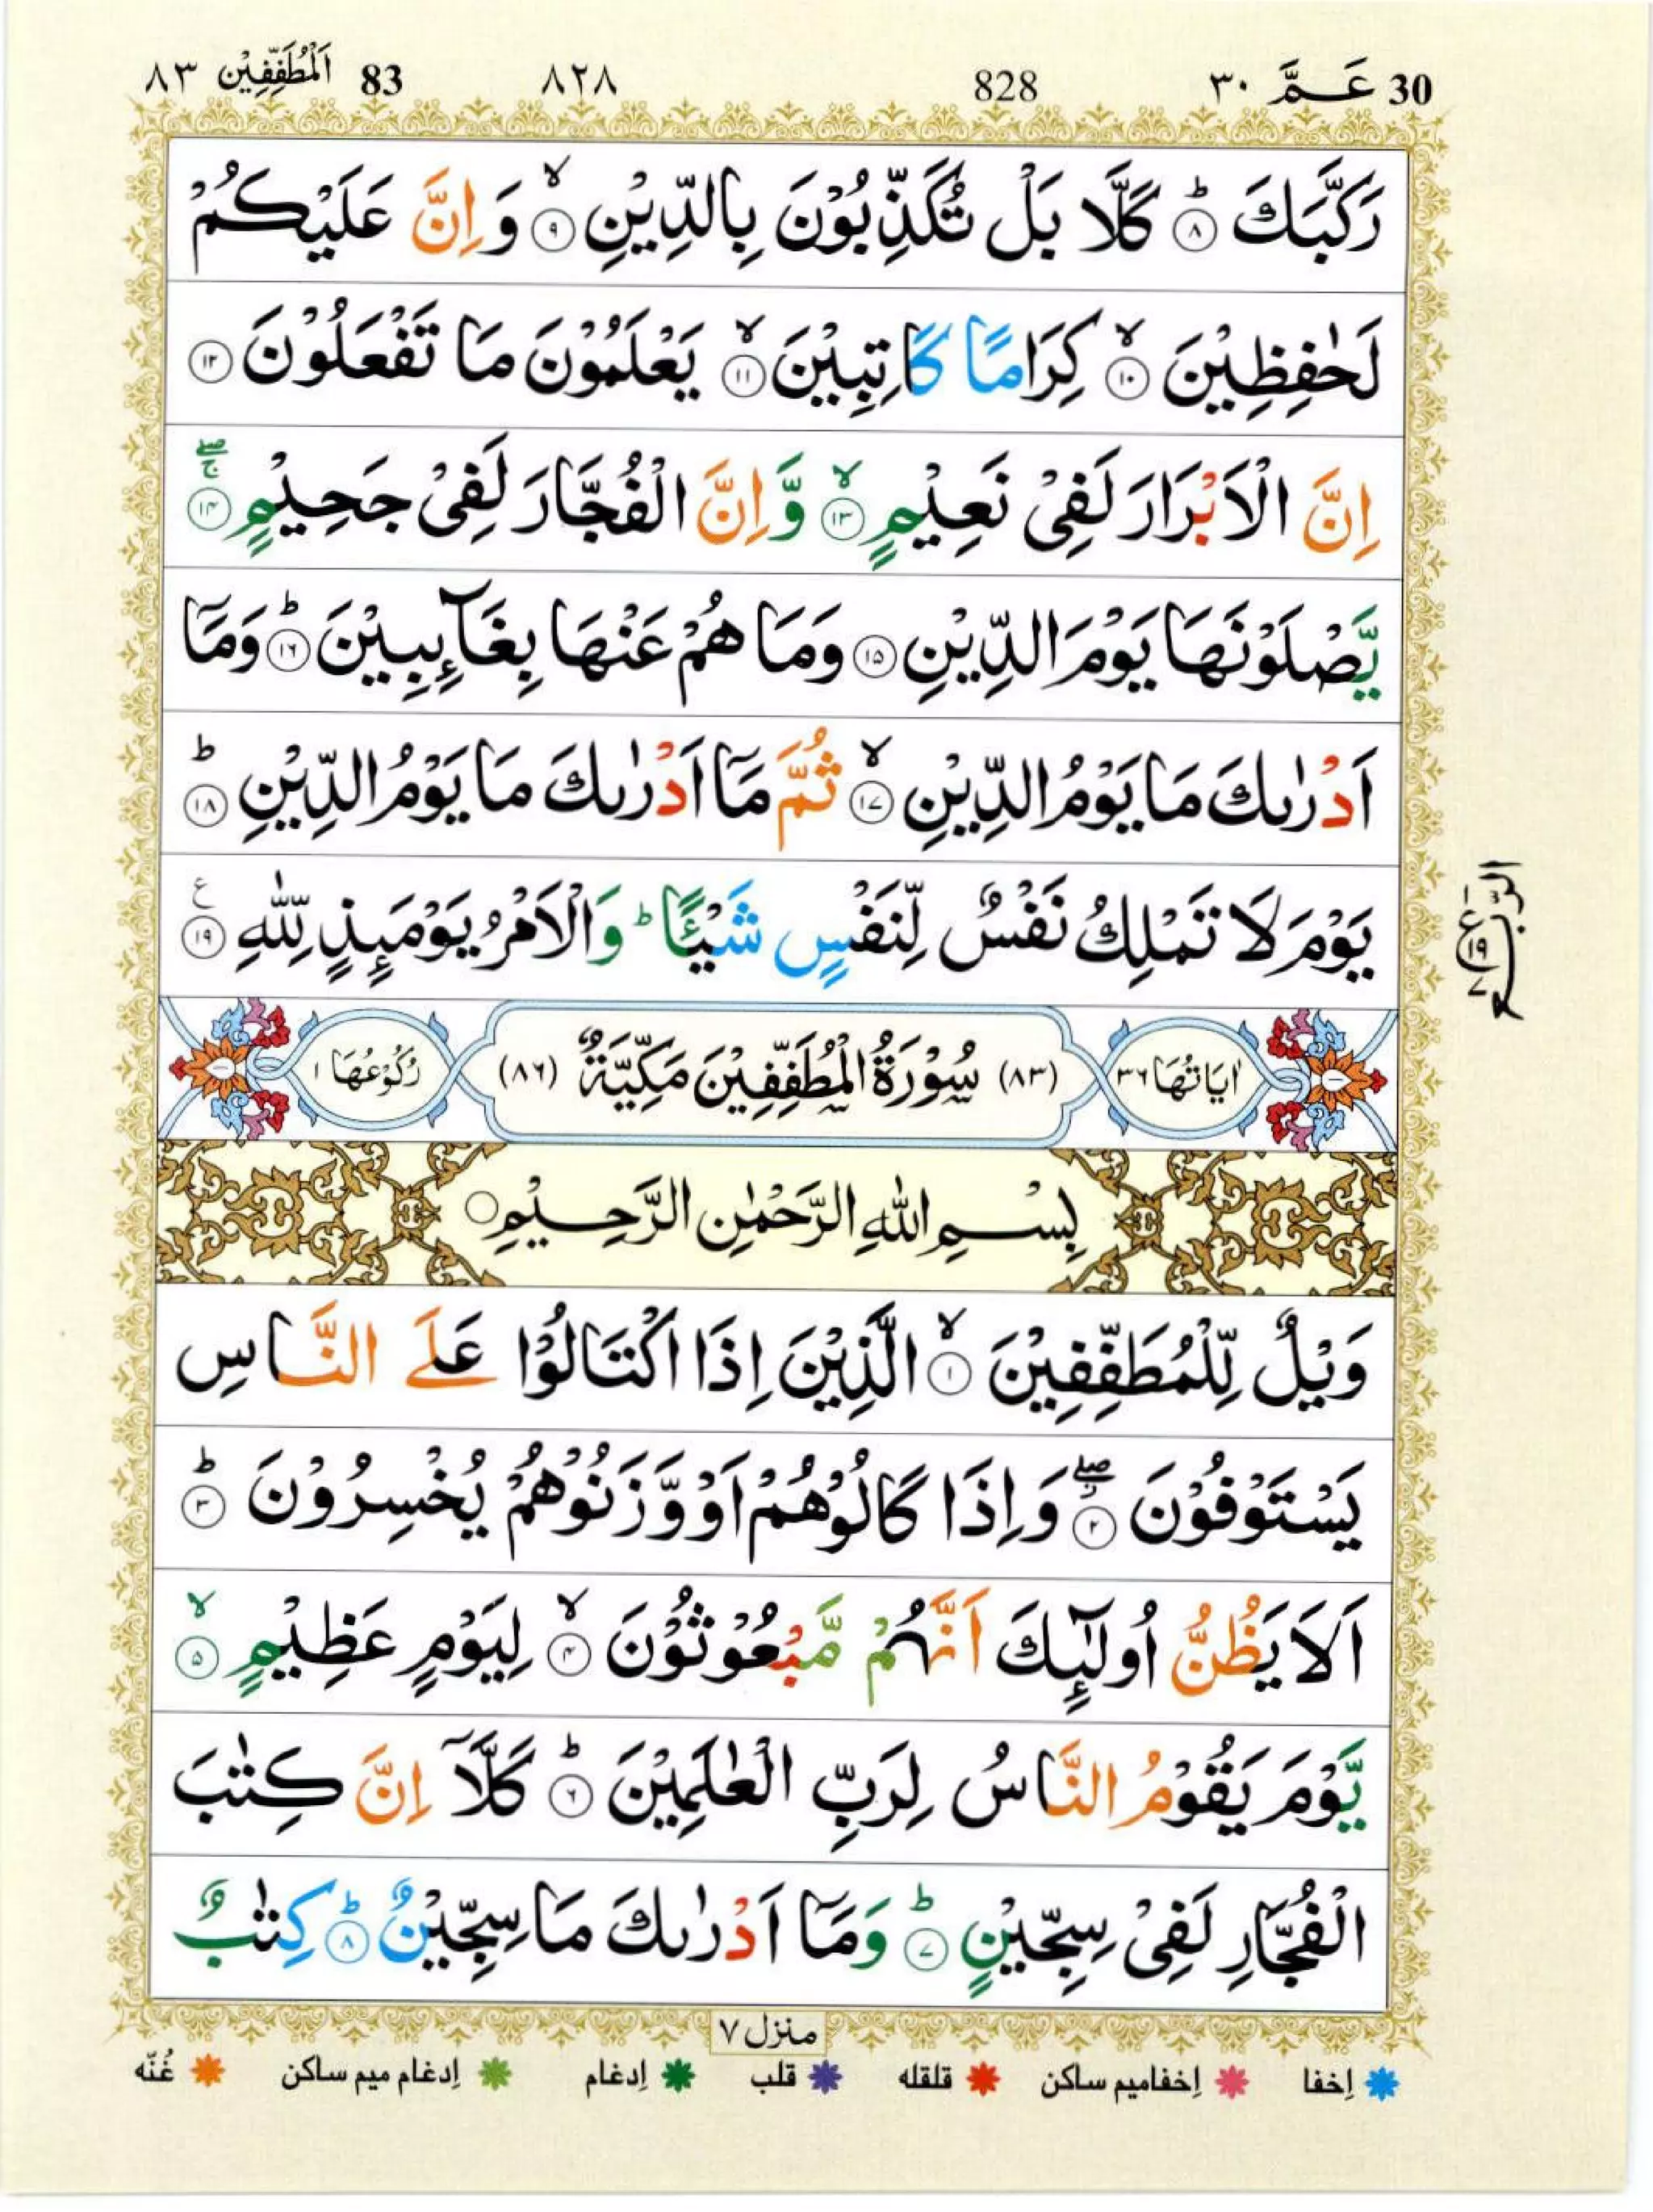 30 عَمَّ ٣٠ 828 ٨٢٨ 83 اَلْمُطَفِّفِيْن ٨٣
رَكَّبَكَ ؕ ﴿۸﴾ كَلَّا بَلْ تُكَذِّبُوْنَ بِالدِّيْنِ ۙ ﴿۹﴾ وَ اِنَّ عَلَيْكُمْ
لَحٰفِظِيْنَ ۙ ﴿۱۰﴾ كِرَامًا كَاتِبِيْنَ ۙ ﴿۱۱﴾ يَعْلَمُوْنَ مَا تَفْعَلُوْنَ ﴿۱۲﴾
اِنَّ الْاَبْرَارَ لَفِىْ نَعِيْمٍ ۙ ﴿۱۳﴾ وَّ اِنَّ الْفُجَّارَ لَفِىْ جَحِيْمٍ ۚۖ ﴿۱۴﴾
يَّصْلَوْنَهَا يَوْمَ الدِّيْنِ ﴿۱۵﴾ وَمَا هُمْ عَنْهَا بِغَآئِبِيْنَ ؕ ﴿۱۶﴾ وَمَاۤ
اَدْرٰىكَ مَا يَوْمُ الدِّيْنِ ۙ ﴿۱۷﴾ ثُمَّ مَاۤ اَدْرٰىكَ مَا يَوْمُ الدِّيْنِ ؕ ﴿۱۸﴾
يَوْمَ لَا تَمْلِكُ نَفْسٌ لِّنَفْسٍ شَيْـًٔا ؕ وَالْاَمْرُ يَوْمَئِذٍ لِّلّٰهِ ﴿۱۹﴾ ع
الرّبع
ع ۱۹ ۷
اٰيَاتُهَا ٣٦ (٨٣) سُوْرَةُ الْمُطَفِّفِيْنَ مَكِّيَّةٌ (٨٦) رُكُوْعُهَا ١
بِسْمِ اللّٰهِ الرَّحْمٰنِ الرَّحِيْمِ
وَيْلٌ لِّلْمُطَفِّفِيْنَ ۙ ﴿۱﴾ الَّذِيْنَ اِذَا اكْتَالُوْا عَلَى النَّاسِ
يَسْتَوْفُوْنَ ۖ ﴿۲﴾ وَاِذَا كَالُوْهُمْ اَوْ وَّزَنُوْهُمْ يُخْسِرُوْنَ ؕ ﴿۳﴾
اَلَا يَظُنُّ اُولٰٓئِكَ اَنَّهُمْ مَّبْعُوْثُوْنَ ۙ ﴿۴﴾ لِيَوْمٍ عَظِيْمٍ ۙ ﴿۵﴾
يَّوْمَ يَقُوْمُ النَّاسُ لِرَبِّ الْعٰلَمِيْنَ ؕ ﴿۶﴾ كَلَّاۤ اِنَّ كِتٰبَ
الْفُجَّارِ لَفِىْ سِجِّيْنٍ ؕ ﴿۷﴾ وَمَاۤ اَدْرٰىكَ مَا سِجِّيْنٌ ؕ ﴿۸﴾ كِتٰبٌ
منزل ٧
إخفا إخفاميم ساكن قلقله قلب إدغام إدغام ميم ساكن غُنّه